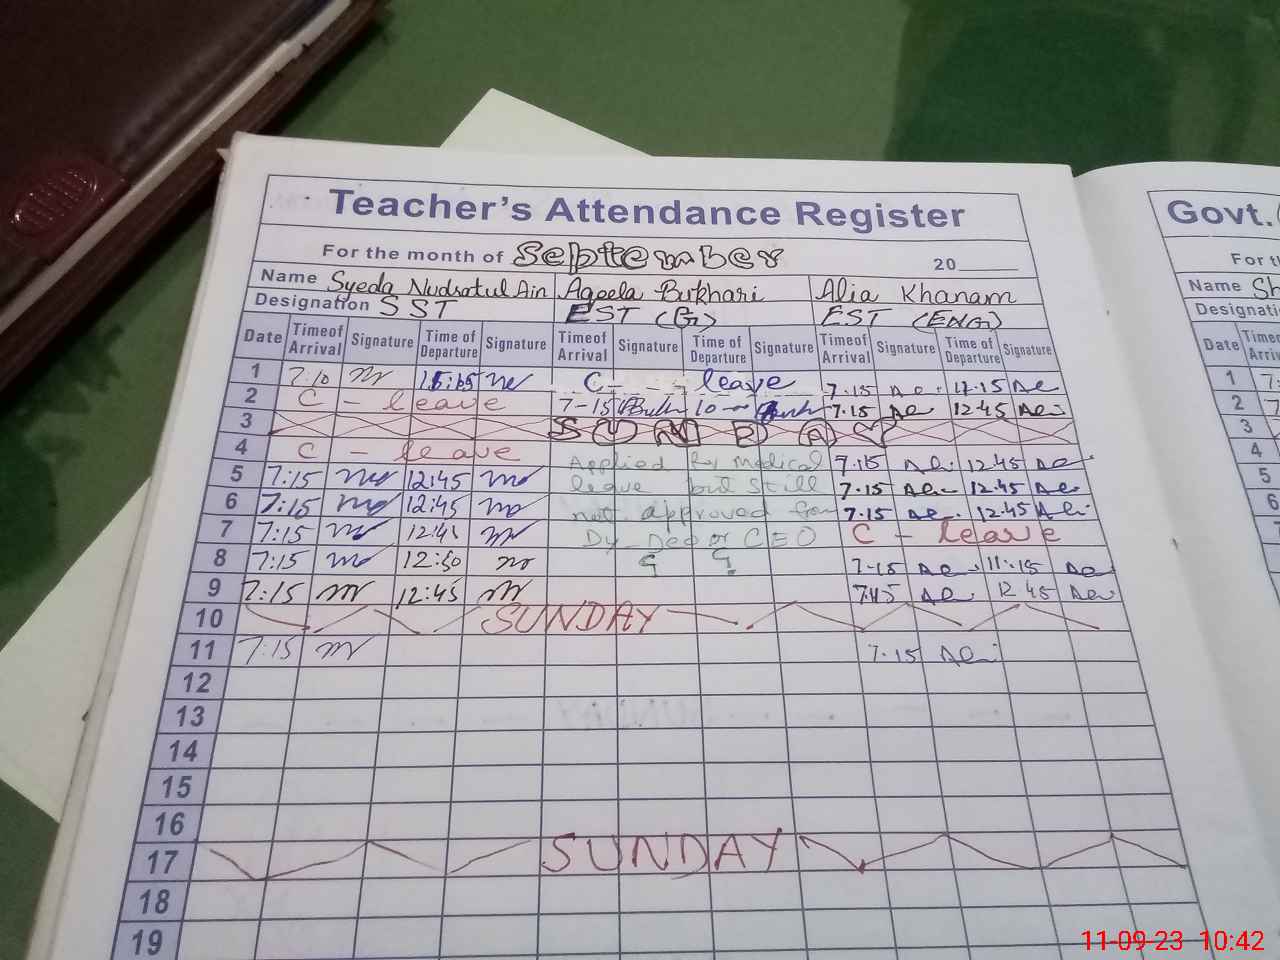 Teacher's Attendance Register
For the month of September 20
Name Syeda Nudratul Ain Aqeela Bukhari Alia Khanam
Designation SST EST (G) EST (ENG)
Date Timeof Arrival Signature Time of Departure Signature Timeof Arrival Signature Time of Departure Signature Timeof Arrival Signature Time of Departure Signature
1 7.10 C - leave 7.15 12.15
2 C - leave 7-15 10 7.15 12 45
3 SUNDAY
4 C - leave Applied for medical 7.15 12 45
5 7:15 12:45 leave but still 7.15 12.45
6 7:15 12:45 not approved from 7.15 12.45
7 7:15 12:45 Dy_Deo or CEO C - leave
8 7:15 12:50 ? ? 7.15 11:15
9 7:15 12:45 12 45
10 SUNDAY
11 7:15 7.15
12
13
14
15
16
17 SUNDAY
18
19
Govt.
For th
Name Sh
Designati
Date Timeof Arriv
1 7:
2 7
3
4
5
6
7
11-09-23 10:42